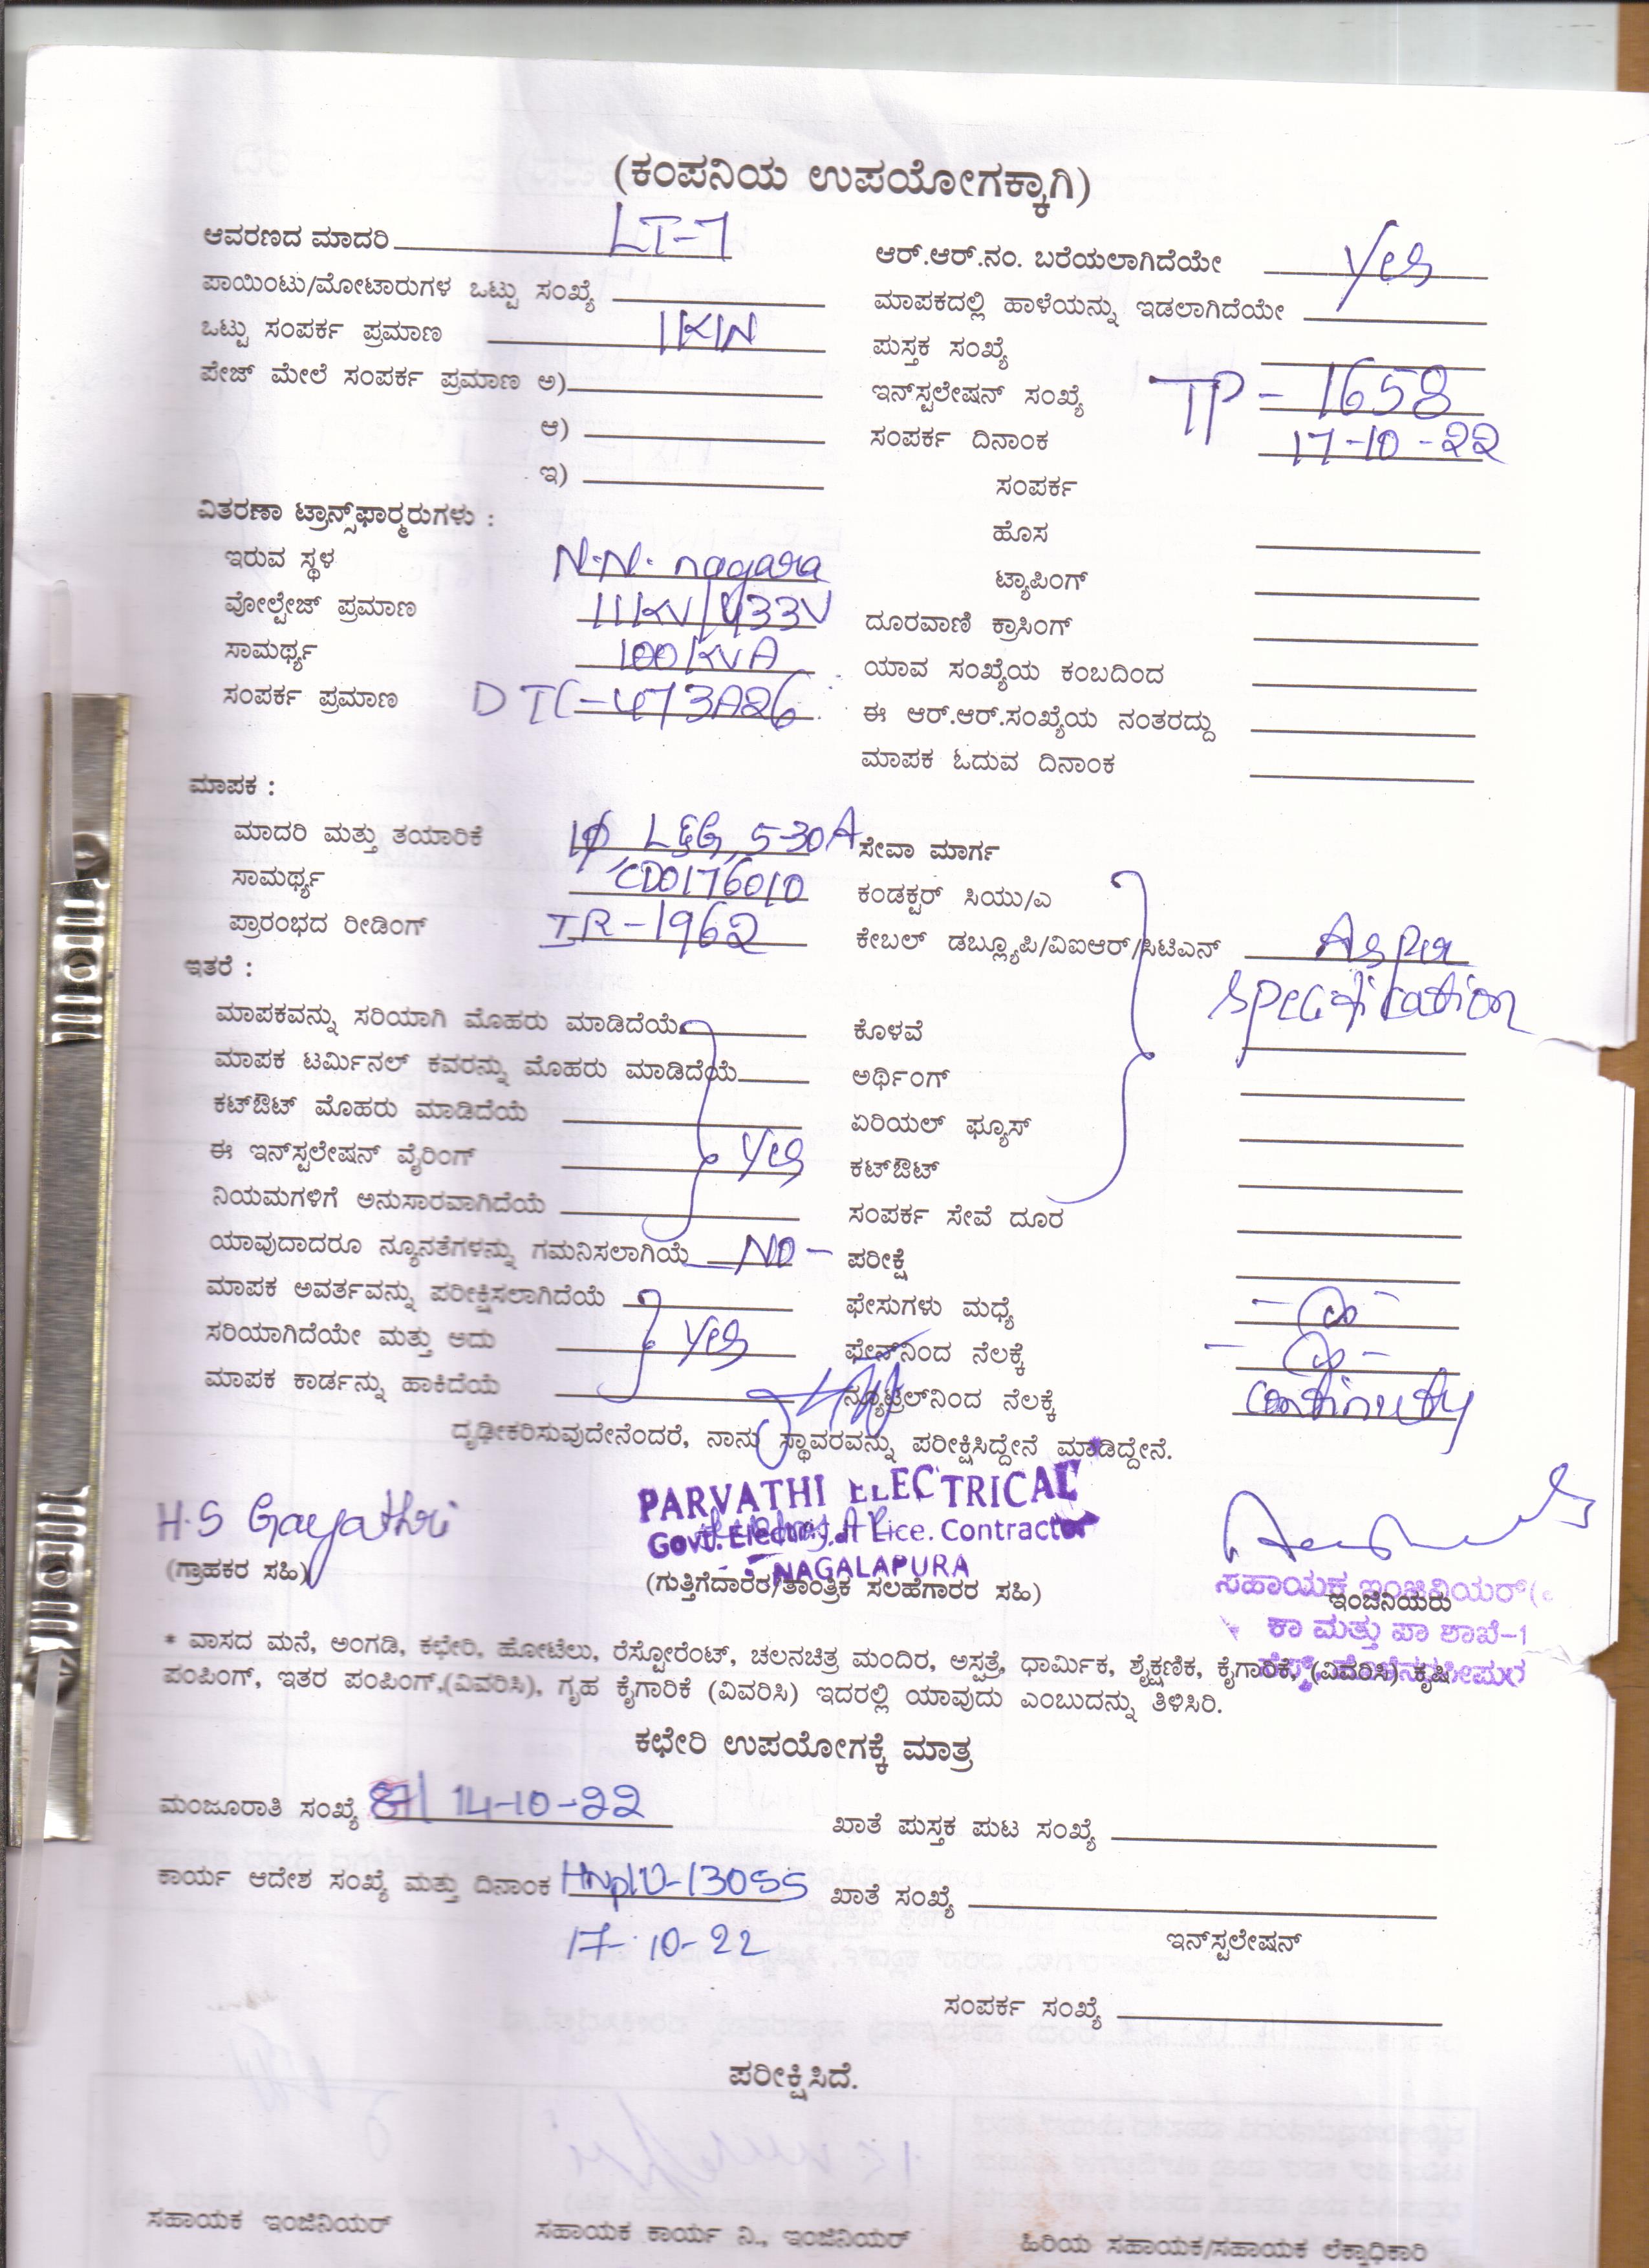 (ಕಂಪನಿಯ ಉಪಯೋಗಕ್ಕಾಗಿ)
ಆವರಣದ ಮಾದರಿ LT-7
ಪಾಯಿಂಟು/ಮೋಟಾರುಗಳ ಒಟ್ಟು ಸಂಖ್ಯೆ
ಒಟ್ಟು ಸಂಪರ್ಕ ಪ್ರಮಾಣ 1KW
ಪೇಜ್ ಮೇಲೆ ಸಂಪರ್ಕ ಪ್ರಮಾಣ ಅ)
ಆ)
ಇ)
ವಿತರಣಾ ಟ್ರಾನ್ಸ್‌ಫಾರ್‍ಮರುಗಳು :
ಇರುವ ಸ್ಥಳ N.N. nagara
ವೋಲ್ಟೇಜ್ ಪ್ರಮಾಣ 11KV/433V
ಸಾಮರ್ಥ್ಯ 100KVA
ಸಂಪರ್ಕ ಪ್ರಮಾಣ DTC-473A26
ಮಾಪಕ :
ಮಾದರಿ ಮತ್ತು ತಯಾರಿಕೆ 1φ L&G, 5-30A
ಸಾಮರ್ಥ್ಯ CD0176010
ಪ್ರಾರಂಭದ ರೀಡಿಂಗ್ IR-1962
ಇತರೆ :
ಮಾಪಕವನ್ನು ಸರಿಯಾಗಿ ಮೊಹರು ಮಾಡಿದೆಯೆ
ಮಾಪಕ ಟರ್ಮಿನಲ್ ಕವರನ್ನು ಮೊಹರು ಮಾಡಿದೆಯೆ
ಕಟ್‌ಔಟ್ ಮೊಹರು ಮಾಡಿದೆಯೆ
ಈ ಇನ್‌ಸ್ಟಲೇಷನ್ ವೈರಿಂಗ್ Yes
ನಿಯಮಗಳಿಗೆ ಅನುಸಾರವಾಗಿದೆಯೆ
ಯಾವುದಾದರೂ ನ್ಯೂನತೆಗಳನ್ನು ಗಮನಿಸಲಾಗಿಯೆ NO -
ಮಾಪಕ ಅವರ್ತವನ್ನು ಪರೀಕ್ಷಿಸಲಾಗಿದೆಯೆ
ಸರಿಯಾಗಿದೆಯೇ ಮತ್ತು ಅದು Yes
ಮಾಪಕ ಕಾರ್ಡನ್ನು ಹಾಕಿದೆಯೆ
ಆರ್.ಆರ್.ನಂ. ಬರೆಯಲಾಗಿದೆಯೇ Yes
ಮಾಪಕದಲ್ಲಿ ಹಾಳೆಯನ್ನು ಇಡಲಾಗಿದೆಯೇ
ಪುಸ್ತಕ ಸಂಖ್ಯೆ
ಇನ್‌ಸ್ಟಲೇಷನ್ ಸಂಖ್ಯೆ TP - 1658
ಸಂಪರ್ಕ ದಿನಾಂಕ 17-10-22
ಸಂಪರ್ಕ
ಹೊಸ
ಟ್ಯಾಪಿಂಗ್
ದೂರವಾಣಿ ಕ್ರಾಸಿಂಗ್
ಯಾವ ಸಂಖ್ಯೆಯ ಕಂಬದಿಂದ
ಈ ಆರ್.ಆರ್.ಸಂಖ್ಯೆಯ ನಂತರದ್ದು
ಮಾಪಕ ಓದುವ ದಿನಾಂಕ
ಸೇವಾ ಮಾರ್ಗ
ಕಂಡಕ್ಟರ್ ಸಿಯು/ಎ
ಕೇಬಲ್ ಡಬ್ಲ್ಯೂಪಿ/ವಿಐಆರ್/ಸಿಟಿಎನ್ As per
specification
ಕೊಳವೆ
ಅರ್ಥಿಂಗ್
ಏರಿಯಲ್ ಫ್ಯೂಸ್
ಕಟ್‌ಔಟ್
ಸಂಪರ್ಕ ಸೇವೆ ದೂರ
ಪರೀಕ್ಷೆ
ಫೇಸುಗಳು ಮಧ್ಯೆ
ಫೇಸ್‌ನಿಂದ ನೆಲಕ್ಕೆ
ನ್ಯೂಟ್ರಲ್‌ನಿಂದ ನೆಲಕ್ಕೆ continuety
ದೃಢೀಕರಿಸುವುದೇನೆಂದರೆ, ನಾನು ಸ್ಥಾವರವನ್ನು ಪರೀಕ್ಷಿಸಿದ್ದೇನೆ ಮಾಡಿದ್ದೇನೆ.
H.S Gayathri
(ಗ್ರಾಹಕರ ಸಹಿ)
PARVATHI ELECTRICAL
Govt. Electrical Lice. Contractor
NAGALAPURA
(ಗುತ್ತಿಗೆದಾರರ/ತಾಂತ್ರಿಕ ಸಲಹೆಗಾರರ ಸಹಿ)
ಸಹಾಯಕ ಇಂಜಿನಿಯರ್
ಇಂಜಿನಿಯರು
ಕಾ ಮತ್ತು ಪಾ ಶಾಖೆ-1
* ವಾಸದ ಮನೆ, ಅಂಗಡಿ, ಕಛೇರಿ, ಹೋಟೆಲು, ರೆಸ್ಟೋರೆಂಟ್, ಚಲನಚಿತ್ರ ಮಂದಿರ, ಅಸ್ಪತ್ರೆ, ಧಾರ್ಮಿಕ, ಶೈಕ್ಷಣಿಕ, ಕೈಗಾರಿಕೆ, (ವಿವರಿಸಿ) ಕೃಷಿ
ಪಂಪಿಂಗ್, ಇತರ ಪಂಪಿಂಗ್,(ವಿವರಿಸಿ), ಗೃಹ ಕೈಗಾರಿಕೆ (ವಿವರಿಸಿ) ಇದರಲ್ಲಿ ಯಾವುದು ಎಂಬುದನ್ನು ತಿಳಿಸಿರಿ.
ಕಛೇರಿ ಉಪಯೋಗಕ್ಕೆ ಮಾತ್ರ
ಮಂಜೂರಾತಿ ಸಂಖ್ಯೆ 14-10-22
ಖಾತೆ ಪುಸ್ತಕ ಪುಟ ಸಂಖ್ಯೆ
ಕಾರ್ಯ ಆದೇಶ ಸಂಖ್ಯೆ ಮತ್ತು ದಿನಾಂಕ
ಖಾತೆ ಸಂಖ್ಯೆ
17-10-22
ಇನ್‌ಸ್ಟಲೇಷನ್
ಸಂಪರ್ಕ ಸಂಖ್ಯೆ
ಪರೀಕ್ಷಿಸಿದೆ.
ಸಹಾಯಕ ಇಂಜಿನಿಯರ್
ಸಹಾಯಕ ಕಾರ್ಯ ನಿ., ಇಂಜಿನಿಯರ್
ಹಿರಿಯ ಸಹಾಯಕ/ಸಹಾಯಕ ಲೆಕ್ಕಾಧಿಕಾರಿ